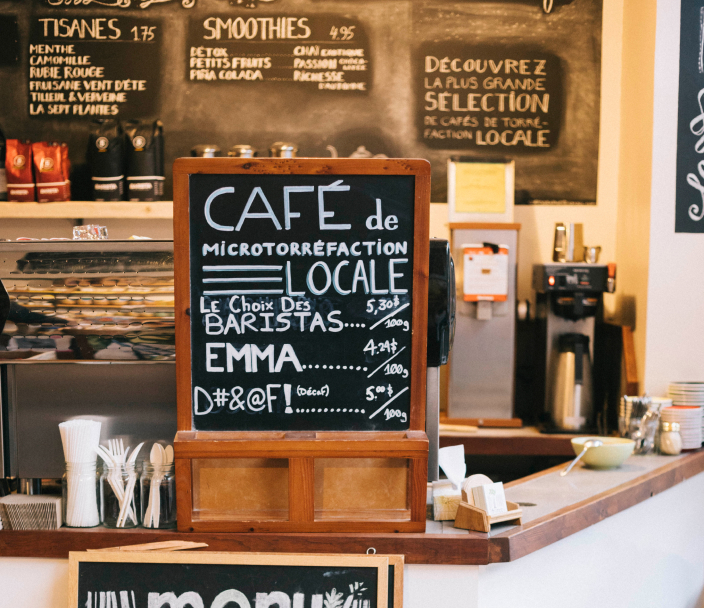 TISANES 1.75
MENTHE
CAMOMILLE
RUBIE ROUGE
FRUISANE VENT D'ÉTE
TILLEUL & VERVEINE
LA SEPT PLANTES
SMOOTHIES 4.95
DÉTOX
PETITS FRUITS
PIÑA COLADA
CHAÏ EXOTIQUE
PASSION CHOCO-
RICHESSE
D'AUTOMNE
DÉCOUVREZ
LA PLUS GRANDE
SÉLECTION
DE CAFÉS DE TORRÉ-
FACTION LOCALE
CAFÉ de
MICROTORRÉFACTION
LOCALE
Le Choix Des
BARISTAS.... 5,30$/100g
EMMA.......... 4.29$/100g
D#&@F! (Décaf) ........... 5.00$/100g
menu